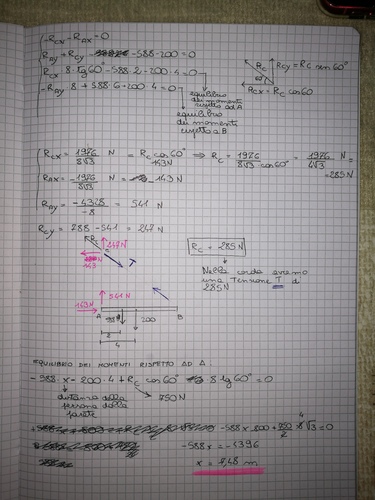 -Rcx - RAx = 0
RAy + RCy - 588 - 200 = 0
Rcx 8 · tg60° - 588 · 2 - 200 · 4 = 0
- RAy · 8 + 588 · 6 + 200 · 4 = 0
equilibrio dei momenti rispetto ad A
equilibrio dei momenti rispetto a B
Rc
Rcy = Rc sen 60°
60°
Rcx = Rc cos 60
Rcx = 1976/8√3 N = Rc cos 60° ⇒ Rc = 1976/8√3 cos60° N = 1976/4√3 N =
143N
= 285N
RAx = -1976/8√3 N = -143N
RAy = -4328/-8 = 541 N
Rcy = 788 - 541 = 247 N
Rc
247N
143
T
Rc = 285N
Nella corda avremo
una Tensione T di
285N
541 N
143N
A
B
200
2
4
EQUILIBRIO DEI MOMENTI RISPETTO AD A
- 588 · x - 200 · 4 + Rc cos 60° 8 tg 60° = 0
distanza della persona dalla parete
750N
-588x - 800 + 750/2 8√3 = 0
-588x = -4396
x = 7,48 m